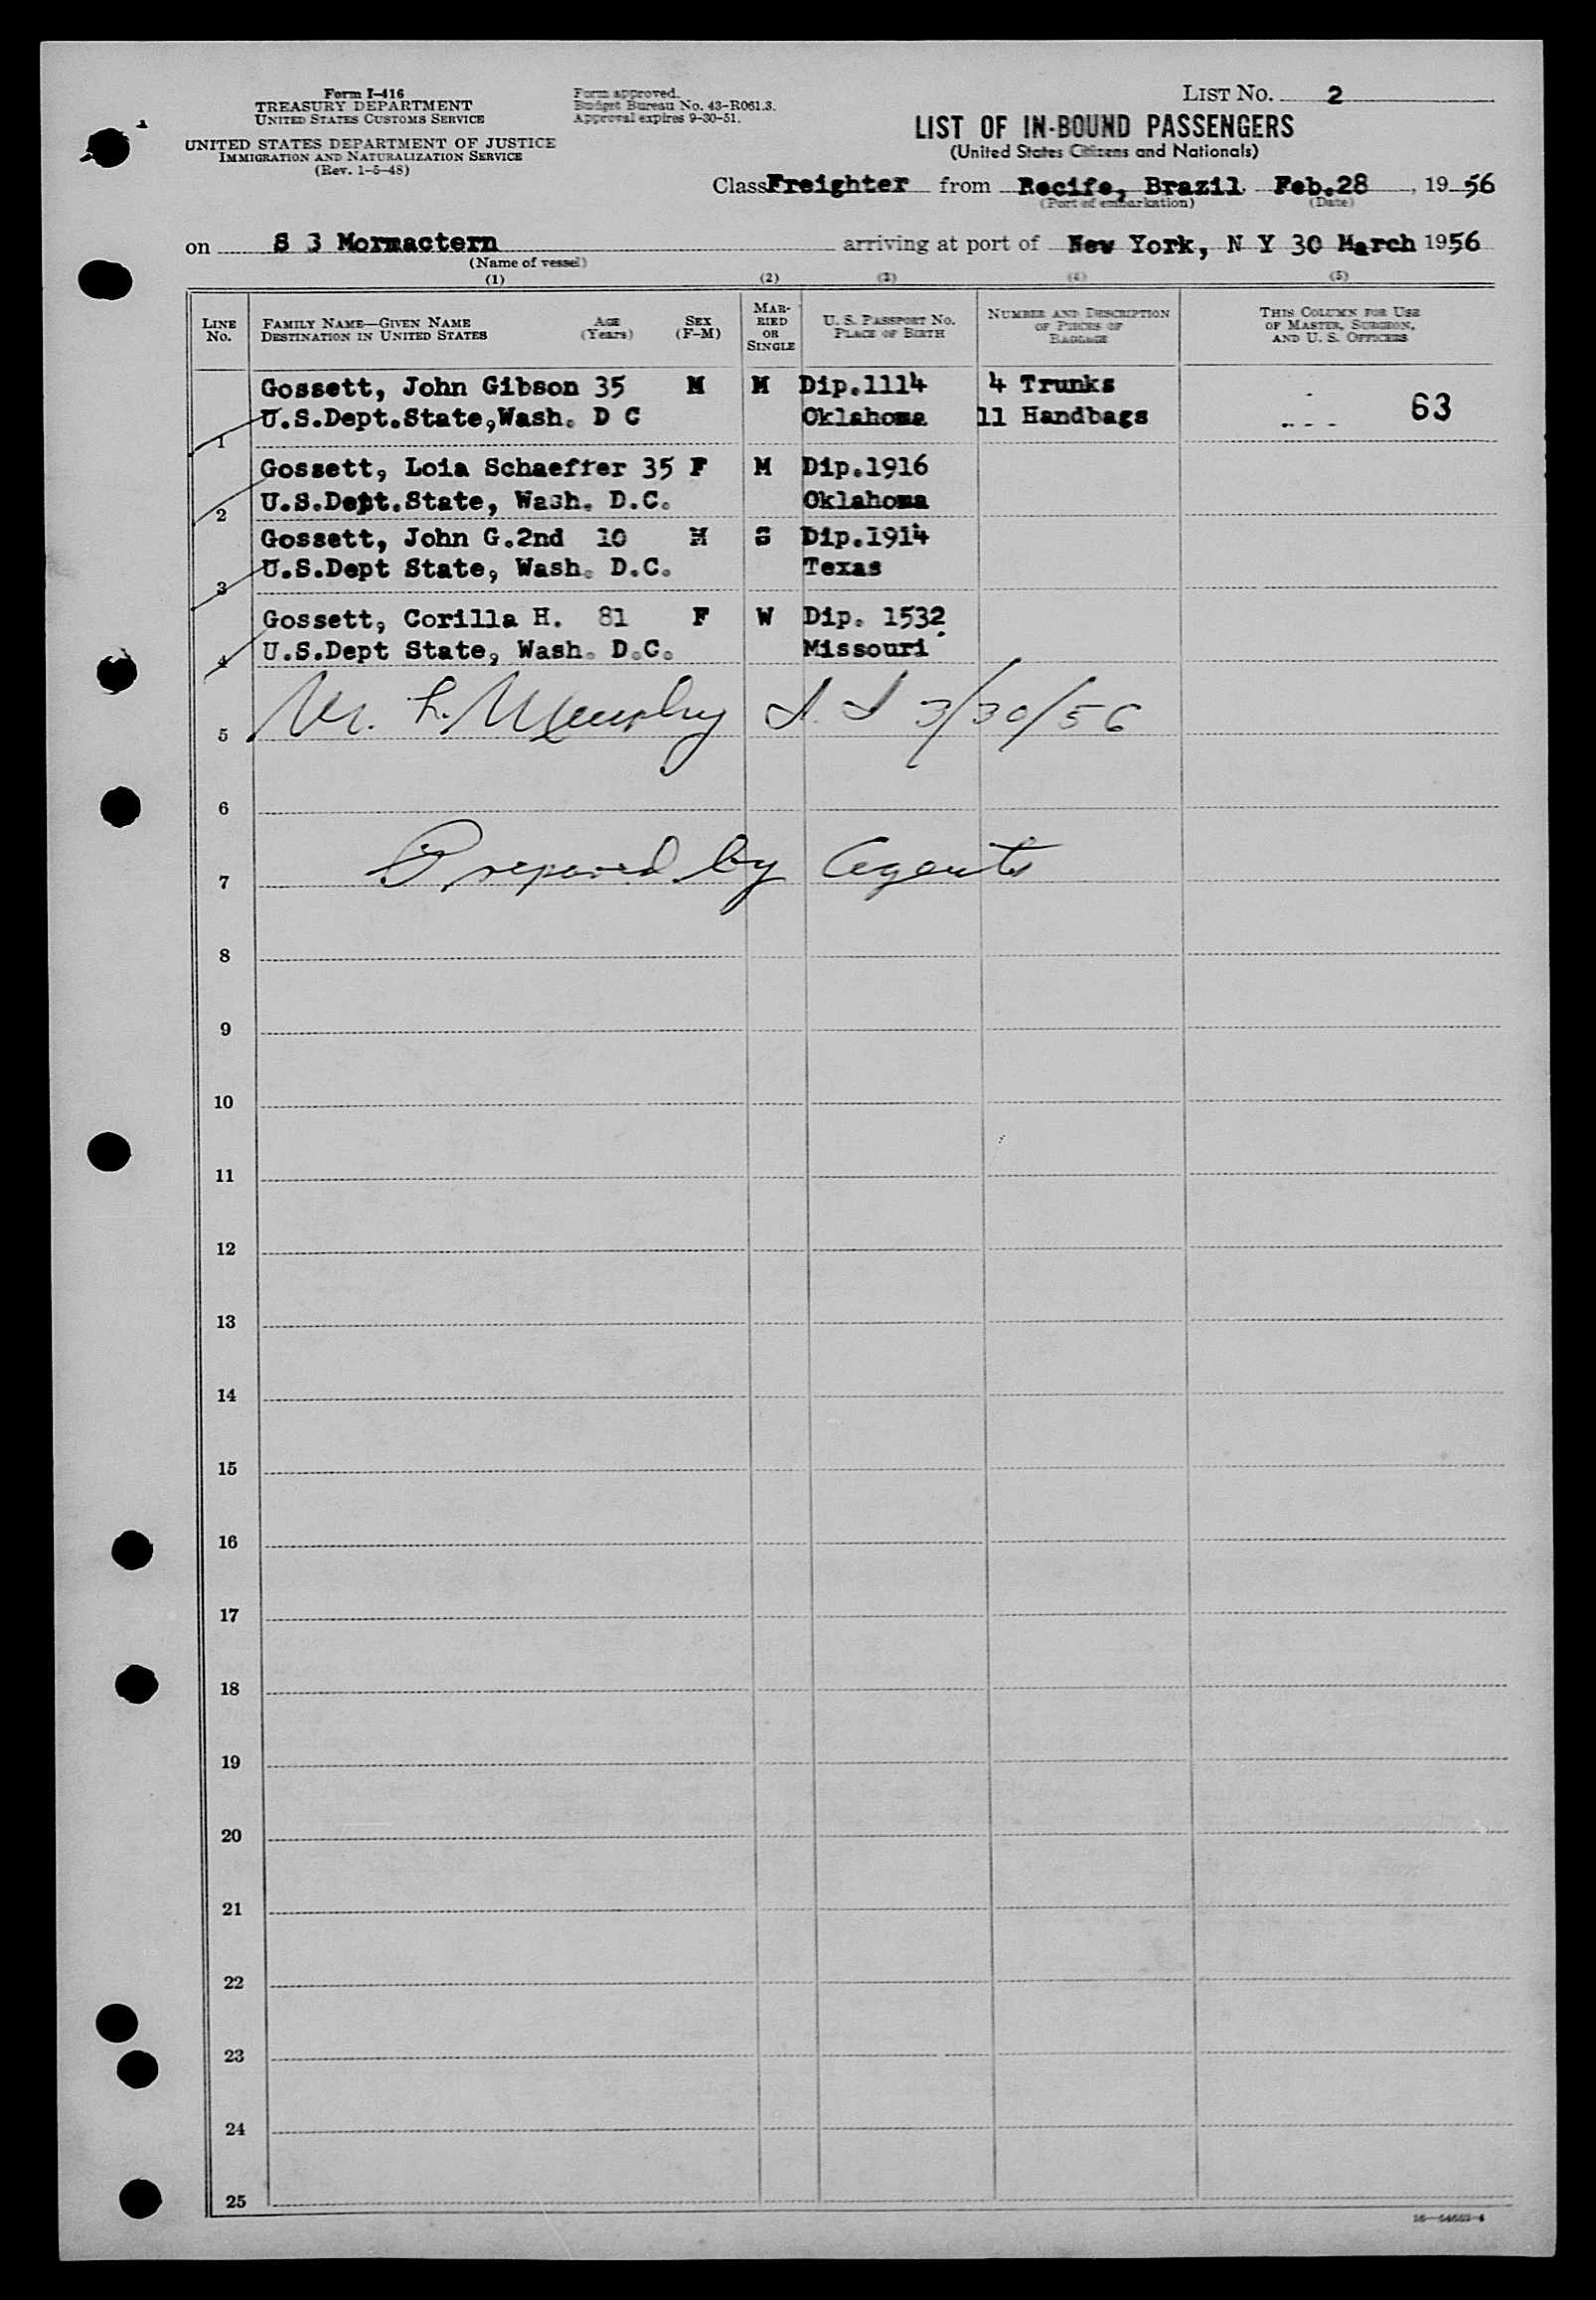 Form I-416
TREASURY DEPARTMENT
UNITED STATES CUSTOMS SERVICE
UNITED STATES DEPARTMENT OF JUSTICE
IMMIGRATION AND NATURALIZATION SERVICE
(Rev. 1-5-48)
Form approved.
Budget Bureau No. 43-R061.3.
Approval expires 9-30-51.
LIST NO. 2
LIST OF IN-BOUND PASSENGERS
(United States Citizens and Nationals)
Class Freighter from Recife, Brazil Feb.28, 1956
(Port of embarkation) (Date)
on S S Mormactern arriving at port of New York, N Y 30 March 1956
(Name of vessel)
(1) (2) (3) (4) (5)
LINE NO. FAMILY NAME—GIVEN NAME DESTINATION IN UNITED STATES AGE (Years) SEX (F-M) MARRIED OR SINGLE U. S. PASSPORT NO. PLACE OF BIRTH NUMBER AND DESCRIPTION OF PIECES OF BAGGAGE THIS COLUMN FOR USE OF MASTER, SURGEON, AND U. S. OFFICERS
Gossett, John Gibson 35 M M Dip.1114 4 Trunks
1 U.S.Dept.State,Wash. D C Oklahoma 11 Handbags 63
Gossett, Lois Schaeffer 35 F M Dip.1916
2 U.S.Dept.State, Wash. D.C. Oklahoma
Gossett, John G.2nd 10 M S Dip.1914
3 U.S.Dept State, Wash. D.C. Texas
Gossett, Corilla H. 81 F W Dip. 1532
4 U.S.Dept State, Wash. D.C. Missouri
5 M. L. Murphy I. I 3/30/56
6
7 Prepared by Agents
8
9
10
11
12
13
14
15
16
17
18
19
20
21
22
23
24
25